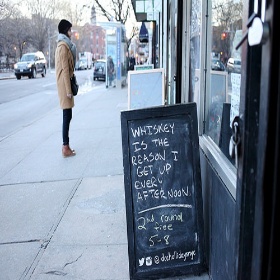 WHISKEY
IS THE
REASON I
GET UP
EVERY
AFTERNOON
2nd round
free
5-8